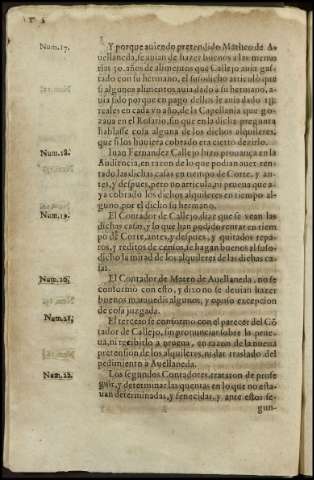 Num.17.
Y porque auiendo pretendido Matheo de A-
uellaneda, se auian de hazer buenos a las menu
tas 30. años de alimentos que Callejo auia gas-
tado con su hermano, el susodicho articulò que
si algunos alimentos auia dado a su hermano, a-
uia sido porque en pago dellos se auia dado
reales en cada vn año, de la Capellania que go-
zaua en el Rosario, sin que en la dicha pregunta
hablasse cosa alguna de los dichos alquileres,
que si los huuiera cobrado era cierto dezirlo.
Num.18.
Iuan Fernandez Callejo hizo prouança en la
Audiencia, en razon de lo que podian auer ren-
tado las dichas casas en tiempo de Corte, y an-
tes, y despues, pero no articula, ni prueua que a-
ya cobrado los dichos alquileres en tiempo al-
guno, por el dicho su hermano.
Num.19.
El Contador de Callejo, dize que se vean las
dichas casas, y lo que han podido rentar en tiem
po de Corte, antes, y despues, y quitados repa-
ros, y reditos de censos, se hagan buenos al suso-
dicho la mitad de los alquileres de las dichas ca-
sas.
Num.20.
El Contador de Mateo de Auellaneda, no se
conformò con esto, y dixo no se deuian hazer
buenos marauedis algunos, y opuso excepcion
de cosa juzgada.
Num.21.
El tercero se conformò con el parecer del Cõ
tador de Callejo, sin pronunciar sobre la prue-
ua, ni recibirlo a prueua, en razon de la nueua
pretension de los alquileres, ni dar traslado del
pedimiento a Auellaneda.
Num.22.
Los segundos Contadores, trataron de prose
guir, y determinar las quentas en lo que no esta-
uan determinadas, y fenecidas, y ante estos se-
gun-